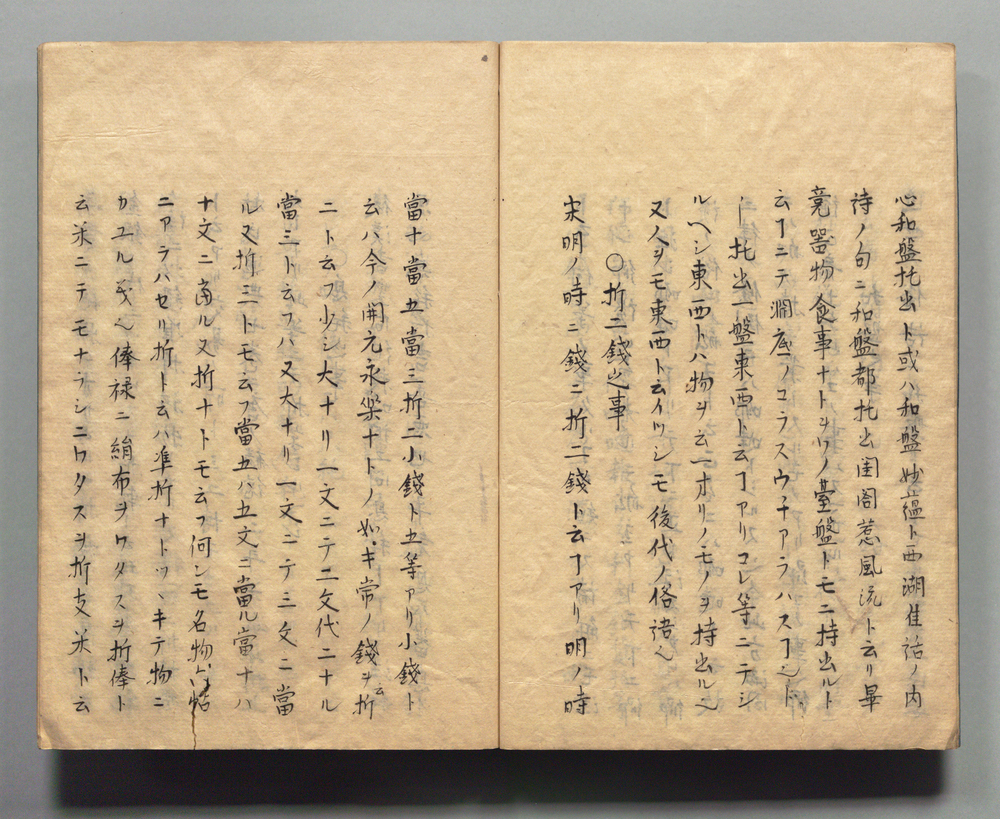 心和盤托出ト或ハ和盤妙蘊ト西湖佳話ノ内
詩ノ句ニ和盤都托出閨閤惹風流ト云リ畢
竟器物食事ナトヲソノ臺盤トモニ持出ルト
云ヿニテ淵底ノコラスウチアラハスヿ也ト
ー托出一盤東西ト云ヿアリコレ等ニテシ
ルヘシ東西トハ物ヲ云一オリノモノヲ持出ル也
又人ヲモ東西ト云イツシモ後代ノ俗語也
○折二錢之事
宋明ノ時ニ錢ニ折二錢ト云ヿアリ明ノ時
當十當五當三折二小錢ト五等アリ小錢ト
云ハ今ノ開元永樂ナトノ如キ常ノ錢ヲ云折
ニト云フ少シ大ナリ一文ニテ二文代ニナル
當三ト云フハ又大ナリ一文ニテ三文ニ當
ル又折三トモ云フ當五ハ五文ニ當ル當十ハ
十文ニ當ル又折十トモ云フ何レモ名物六帖
ニアラハセリ折ト云ハ準折ナトツヽキテ物ニ
カユル義也俸禄ニ絹布ヲワタスヲ折俸ト
云米ニテモナヲシニワタスヲ折支米ト云